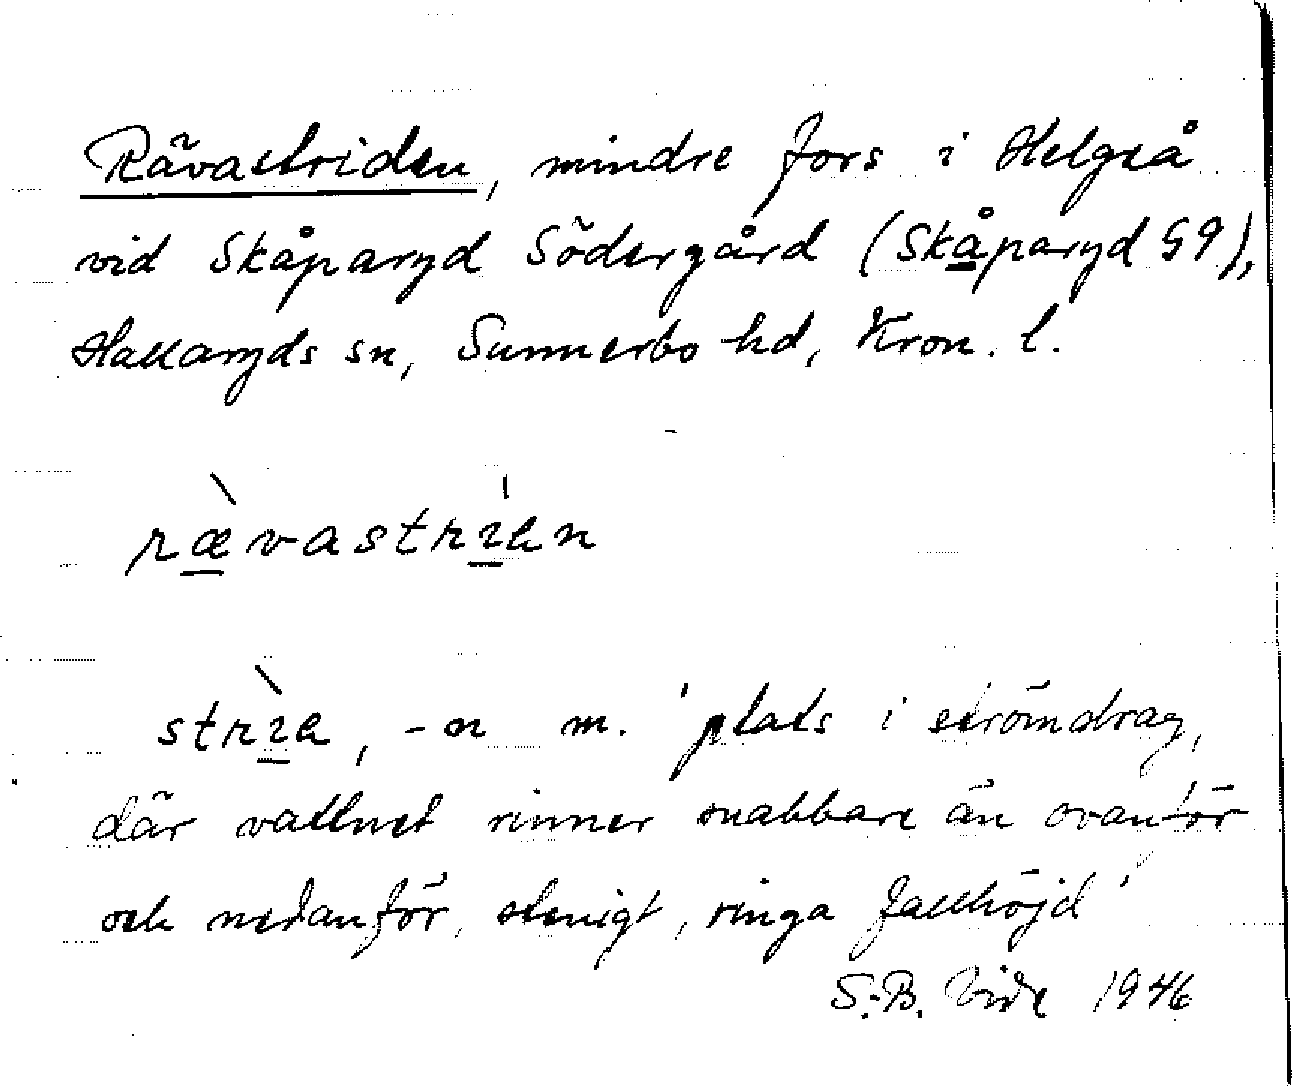 Rävastriden, mindre fors i Helgeå
vid Skåparyd Södergård (Skåparyd S9),
Hallaryds sn, Sunnerbo hd, Kron. l.
ræ̀vastrìen
strìe, -n m. 'plats i strömdrag,
där vattnet rinner snabbare än ovanför
och nedanför, stenigt, ringa fallhöjd'
S.-B. Vide 1946